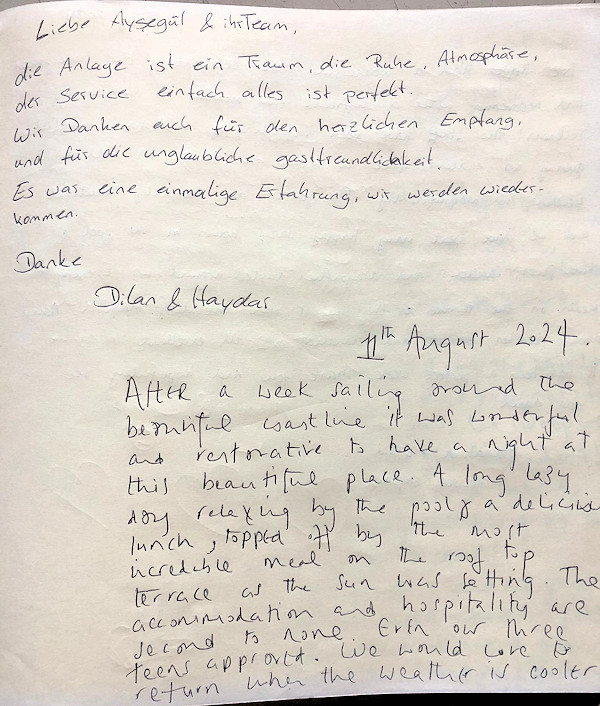 Liebe Aysegül & ihr Team,
die Anlage ist ein Traum, die Ruhe, Atmosphäre,
der Service einfach alles ist perfekt.
Wir Danken euch für den herzlichen Empfang,
und für die unglaubliche gastfreundlichkeit.
Es war eine einmalige Erfahrung, wir werden wieder-
kommen.
Danke
Dilan & Haydar
11th August 2024.
After a week sailing around the
beautiful coastline it was wonderful
and restorative to have a night at
this beautiful place. A long lazy
day relaxing by the pool & a delicious
lunch, topped off by the most
incredible meal on the roof top
terrace as the sun was setting. The
accommodation and hospitality are
second to none. Even our three
teens approved. We would love to
return when the weather is cooler